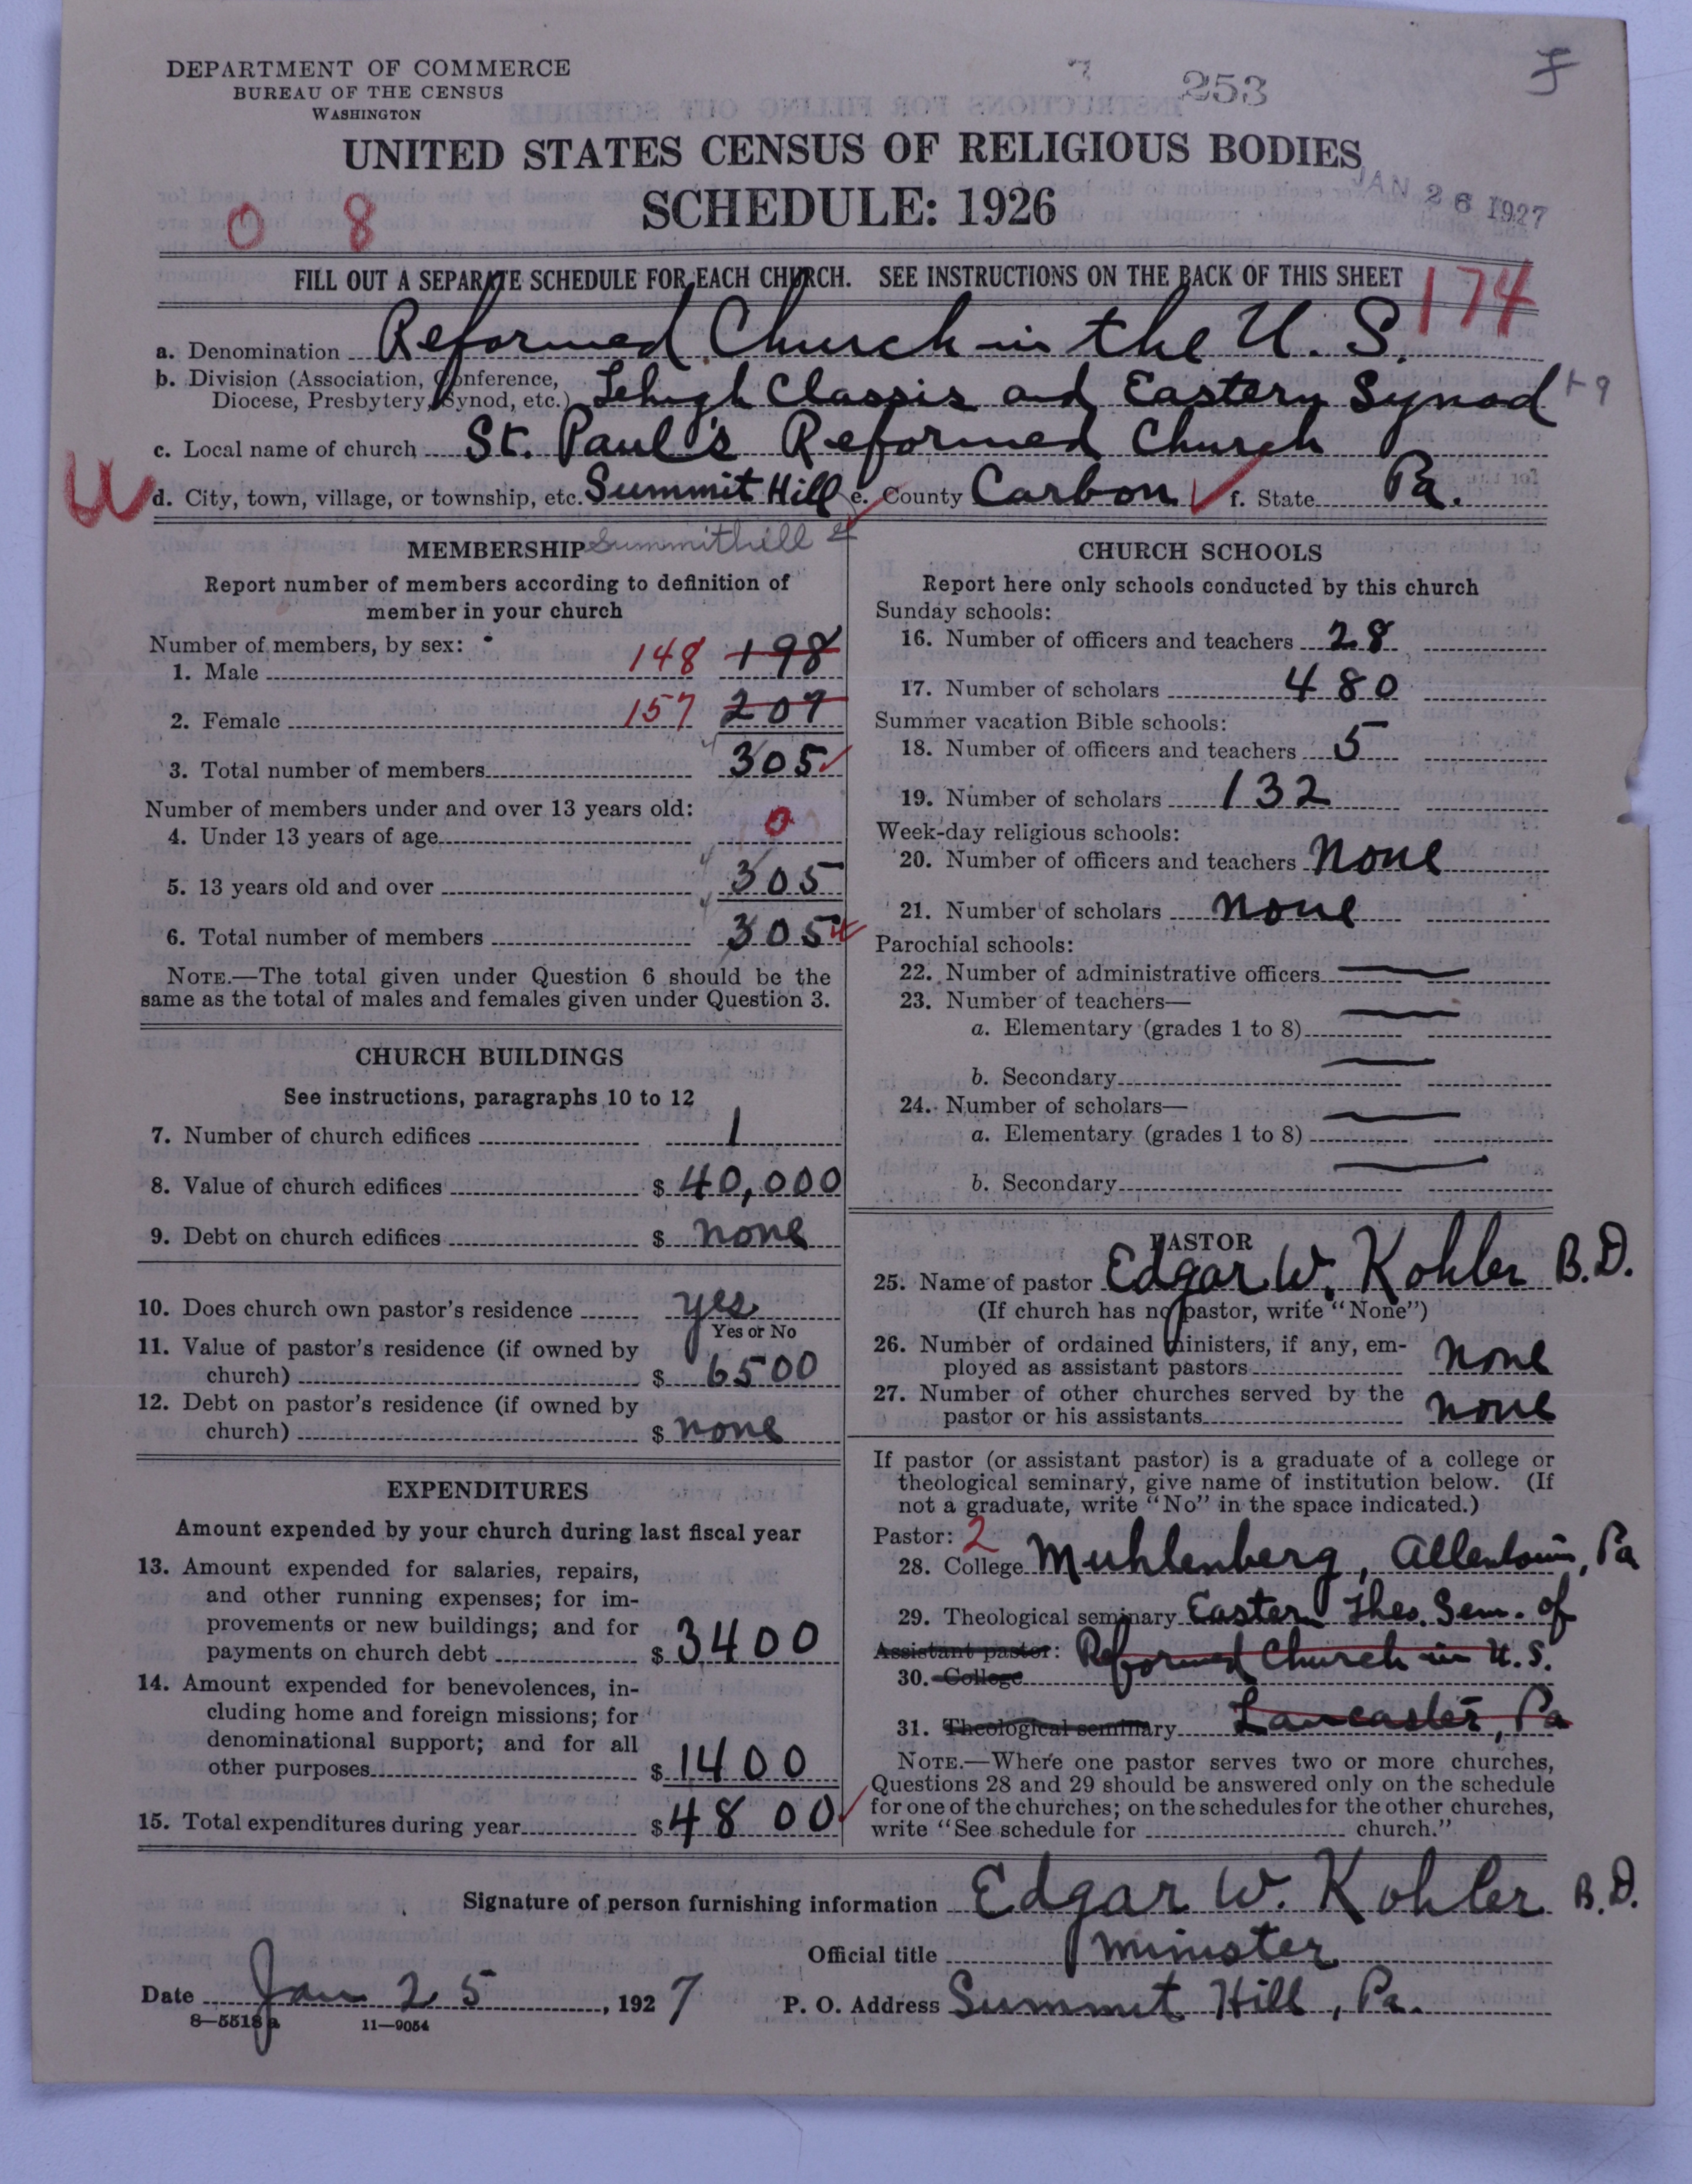 DEPARTMENT OF COMMERCE
BUREAU OF THE CENSUS
WASHINGTON
253
UNITED STATES CENSUS OF RELIGIOUS BODIES
SCHEDULE: 1926
JAN 26 1927
0 8
FILL OUT A SEPARATE SCHEDULE FOR EACH CHURCH. SEE INSTRUCTIONS ON THE BACK OF THIS SHEET
174
a. Denomination Reformed Church in the U. S.
b. Division (Association, Conference,
Diocese, Presbytery, Synod, etc.) Lehigh Classis and Eastern Synod
c. Local name of church St. Paul's Reformed Church
d. City, town, village, or township, etc. Summit Hill e. County Carbon f. State Pa.
MEMBERSHIP Summithill
Report number of members according to definition of
member in your church
Number of members, by sex:
1. Male 148 198
2. Female 157 207
3. Total number of members 305
Number of members under and over 13 years old:
4. Under 13 years of age 0
5. 13 years old and over 305
6. Total number of members 305
NOTE.—The total given under Question 6 should be the
same as the total of males and females given under Question 3.
CHURCH BUILDINGS
See instructions, paragraphs 10 to 12
7. Number of church edifices 1
8. Value of church edifices $ 40,000
9. Debt on church edifices $ none
10. Does church own pastor's residence yes
Yes or No
11. Value of pastor's residence (if owned by
church) $ 6500
12. Debt on pastor's residence (if owned by
church) $ none
EXPENDITURES
Amount expended by your church during last fiscal year
13. Amount expended for salaries, repairs,
and other running expenses; for im-
provements or new buildings; and for
payments on church debt $ 3400
14. Amount expended for benevolences, in-
cluding home and foreign missions; for
denominational support; and for all
other purposes $ 1400
15. Total expenditures during year $ 4800
CHURCH SCHOOLS
Report here only schools conducted by this church
Sunday schools:
16. Number of officers and teachers 28
17. Number of scholars 480
Summer vacation Bible schools:
18. Number of officers and teachers 5
19. Number of scholars 132
Week-day religious schools:
20. Number of officers and teachers none
21. Number of scholars none
Parochial schools:
22. Number of administrative officers
23. Number of teachers—
a. Elementary (grades 1 to 8)
b. Secondary
24. Number of scholars—
a. Elementary (grades 1 to 8)
b. Secondary
PASTOR
25. Name of pastor Edgar W. Kohler B.D.
(If church has no pastor, write "None")
26. Number of ordained ministers, if any, em-
ployed as assistant pastors none
27. Number of other churches served by the
pastor or his assistants none
If pastor (or assistant pastor) is a graduate of a college or
theological seminary, give name of institution below. (If
not a graduate, write "No" in the space indicated.)
Pastor: 2
28. College Muhlenberg, Allentown, Pa
29. Theological seminary Eastern Theo. Sem. of
Assistant pastor: Reformed Church in U.S.
30. College
31. Theological seminary Lancaster, Pa
NOTE.—Where one pastor serves two or more churches,
Questions 28 and 29 should be answered only on the schedule
for one of the churches; on the schedules for the other churches,
write "See schedule for church."
Signature of person furnishing information Edgar W. Kohler B.D.
Official title Minister
Date Jan 25, 1927 P. O. Address Summit Hill, Pa.
8—5518a 11—9054